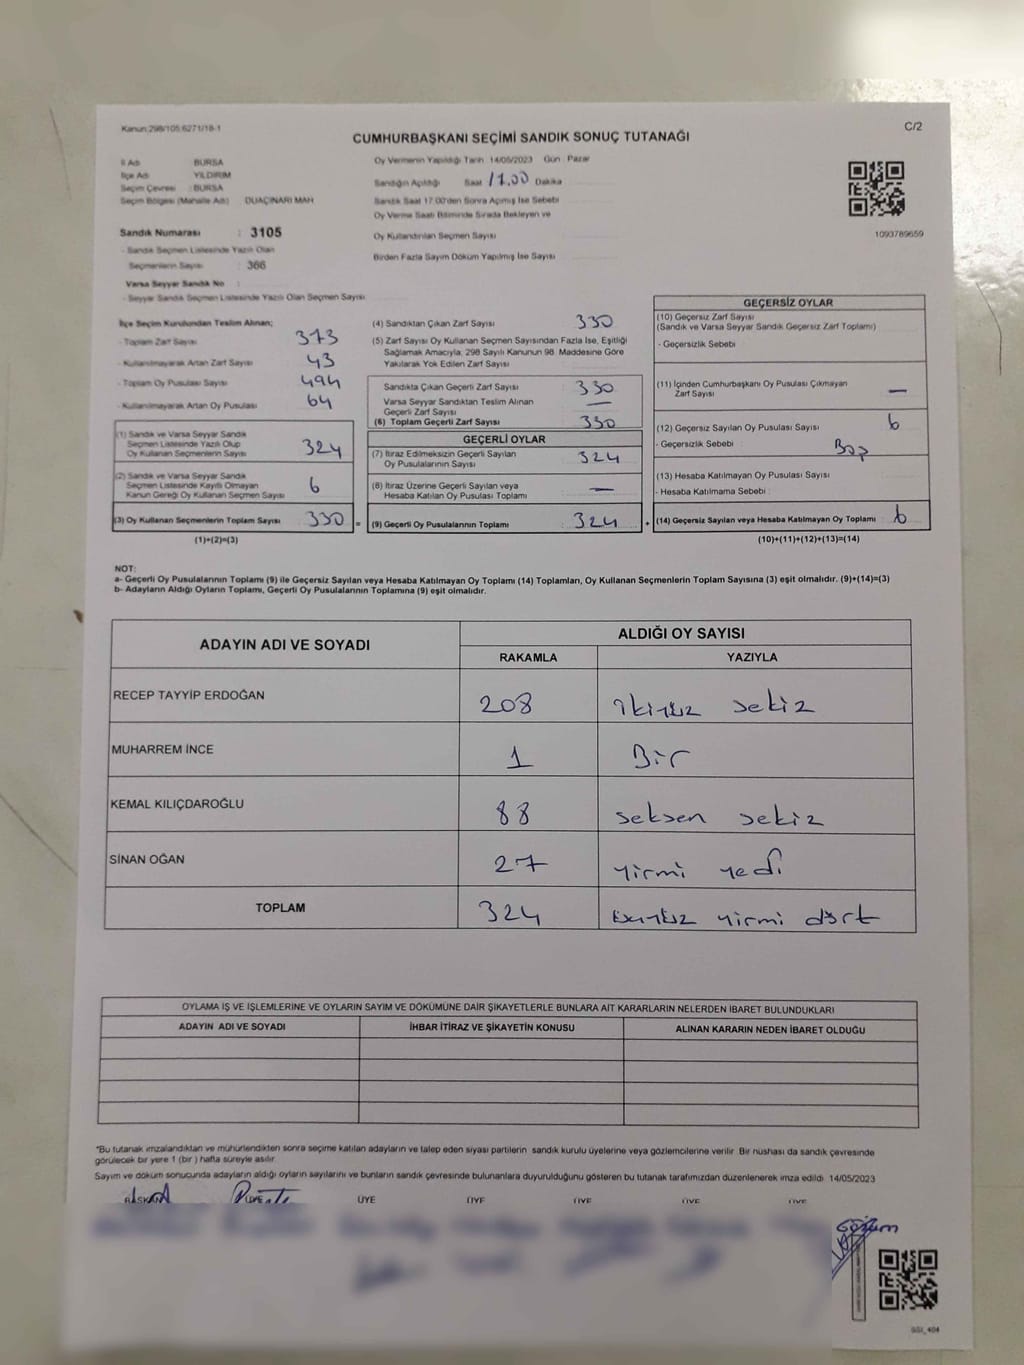 Kanun:298/105,6271/18-1
C/2
CUMHURBAŞKANI SEÇİMİ SANDIK SONUÇ TUTANAĞI
İl Adı : BURSA
İlçe Adı : YILDIRIM
Seçim Çevresi : BURSA
Seçim Bölgesi (Mahalle Adı) : DUAÇINARI MAH
Sandık Numarası : 3105
- Sandık Seçmen Listesinde Yazılı Olan
Seçmenlerin Sayısı : 366
Varsa Seyyar Sandık No :
- Seyyar Sandık Seçmen Listesinde Yazılı Olan Seçmen Sayısı
Oy Vermenin Yapıldığı Tarih 14/05/2023 Gün Pazar
Sandığın Açıldığı Saat 17.00 Dakika
Sandık Saat 17.00'den Sonra Açımış İse Sebebi
Oy Verme Saati Bitiminde Sırada Bekleyen ve
Oy Kullandırılan Seçmen Sayısı
Birden Fazla Sayım Döküm Yapılmış İse Sayısı
1093789659
İlçe Seçim Kurulundan Teslim Alınan;
- Toplam Zarf Sayısı 373
- Kullanılmayarak Artan Zarf Sayısı 43
- Toplam Oy Pusulası Sayısı 494
- Kullanılmayarak Artan Oy Pusulası 64
(1) Sandık ve Varsa Seyyar Sandık
Seçmen Listesinde Yazılı Olup
Oy Kullanan Seçmenlerin Sayısı 324
(2) Sandık ve Varsa Seyyar Sandık
Seçmen Listesinde Kayıtlı Olmayan
Kanun Gereği Oy Kullanan Seçmen Sayısı 6
(3) Oy Kullanan Seçmenlerin Toplam Sayısı 330 =
(1)+(2)=(3)
(4) Sandıktan Çıkan Zarf Sayısı 330
(5) Zarf Sayısı Oy Kullanan Seçmen Sayısından Fazla İse, Eşitliği
Sağlamak Amacıyla, 298 Sayılı Kanunun 98. Maddesine Göre
Yakılarak Yok Edilen Zarf Sayısı
Sandıkta Çıkan Geçerli Zarf Sayısı 330
Varsa Seyyar Sandıktan Teslim Alınan
Geçerli Zarf Sayısı —
(6) Toplam Geçerli Zarf Sayısı 330
GEÇERLİ OYLAR
(7) İtiraz Edilmeksizin Geçerli Sayılan
Oy Pusulalarının Sayısı 324
(8) İtiraz Üzerine Geçerli Sayılan veya
Hesaba Katılan Oy Pusulası Toplamı —
(9) Geçerli Oy Pusulalarının Toplamı : 324 +
GEÇERSİZ OYLAR
(10) Geçersiz Zarf Sayısı
(Sandık ve Varsa Seyyar Sandık Geçersiz Zarf Toplamı)
- Geçersizlik Sebebi
(11) İçinden Cumhurbaşkanı Oy Pusulası Çıkmayan
Zarf Sayısı —
(12) Geçersiz Sayılan Oy Pusulası Sayısı 6
- Geçersizlik Sebebi
(13) Hesaba Katılmayan Oy Pusulası Sayısı
- Hesaba Katılmama Sebebi :
(14) Geçersiz Sayılan veya Hesaba Katılmayan Oy Toplamı : 6
(10)+(11)+(12)+(13)=(14)
NOT:
a- Geçerli Oy Pusulalarının Toplamı (9) ile Geçersiz Sayılan veya Hesaba Katılmayan Oy Toplamı (14) Toplamları, Oy Kullanan Seçmenlerin Toplam Sayısına (3) eşit olmalıdır. (9)+(14)=(3)
b- Adayların Aldığı Oyların Toplamı, Geçerli Oy Pusulalarının Toplamına (9) eşit olmalıdır.
ADAYIN ADI VE SOYADI
ALDIĞI OY SAYISI
RAKAMLA YAZIYLA
RECEP TAYYİP ERDOĞAN 208 ikiyüz sekiz
MUHARREM İNCE 1 Bir
KEMAL KILIÇDAROĞLU 88 seksen sekiz
SİNAN OĞAN 27 yirmi yedi
TOPLAM 324 üçyüz yirmi dört
OYLAMA İŞ VE İŞLEMLERİNE VE OYLARIN SAYIM VE DÖKÜMÜNE DAİR ŞİKAYETLERLE BUNLARA AİT KARARLARIN NELERDEN İBARET BULUNDUKLARI
ADAYIN ADI VE SOYADI İHBAR İTİRAZ VE ŞİKAYETİN KONUSU ALINAN KARARIN NEDEN İBARET OLDUĞU
*Bu tutanak imzalandıktan ve mühürlendikten sonra seçime katılan adayların ve talep eden siyasi partilerin sandık kurulu üyelerine veya gözlemcilerine verilir. Bir nüshası da sandık çevresinde
görülecek bir yere 1 (bir) hafta süreyle asılır.
Sayım ve döküm sonucunda adayların aldığı oyların sayılarını ve bunların sandık çevresinde bulunanlara duyurulduğunu gösteren bu tutanak tarafımızdan düzenlenerek imza edildi. 14/05/2023
BAŞKAN ÜYE ÜYE ÜYE ÜYE ÜYE ÜYE